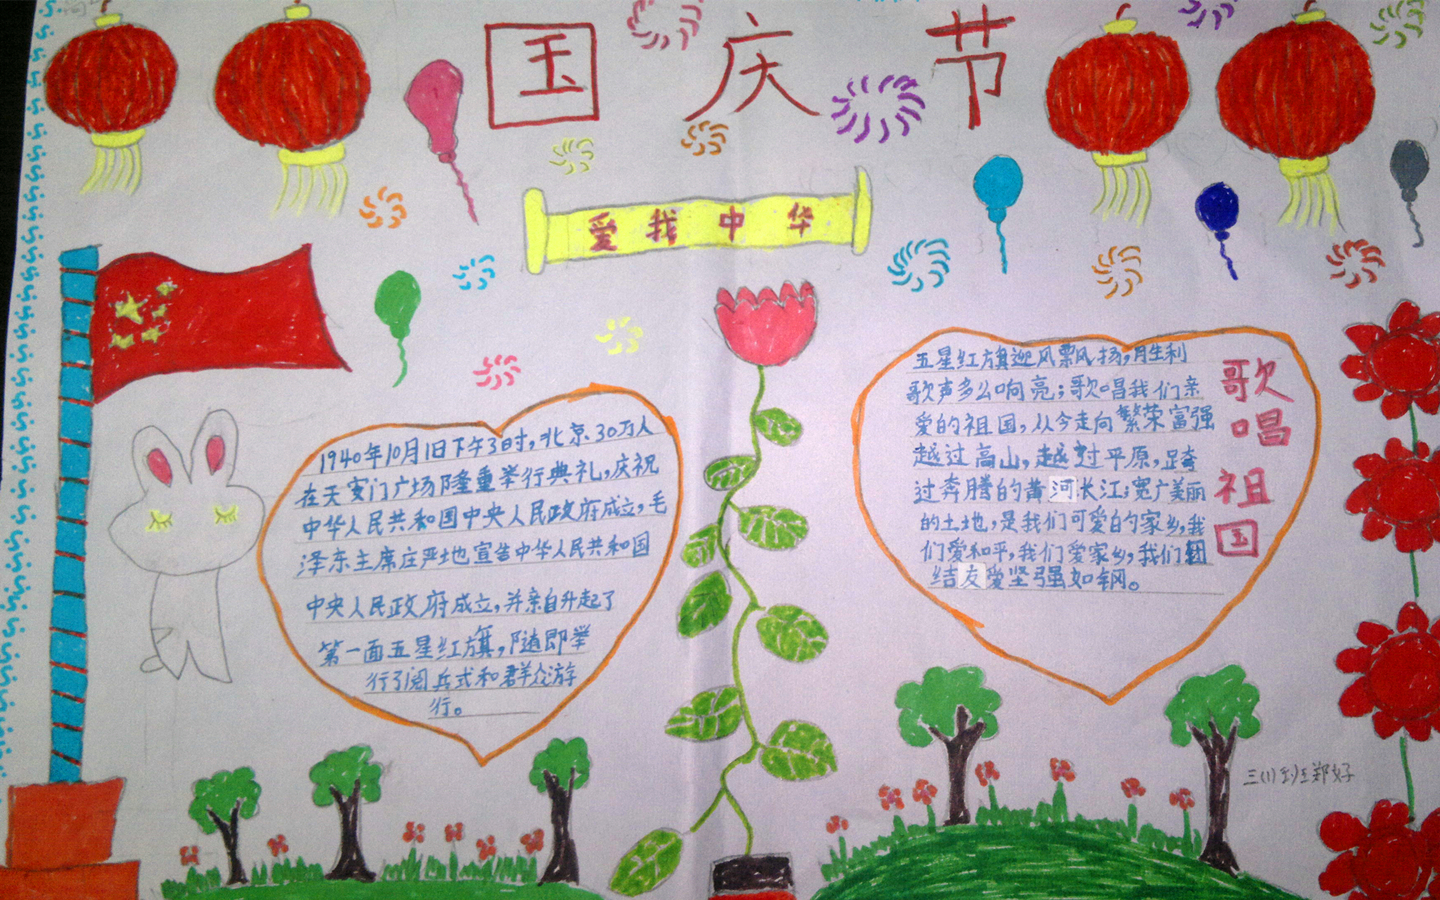 国庆节
爱我中华
1940年10月1日下午3时,北京30万人
在天安门广场隆重举行典礼,庆祝
中华人民共和国中央人民政府成立,毛
泽东主席庄严地宣告中华人民共和国
中央人民政府成立,并亲自升起了
第一面五星红旗,随即举
行了阅兵式和群众游
行。
歌唱祖国
五星红旗迎风飘扬,胜利
歌声多么响亮;歌唱我们亲
爱的祖国,从今走向繁荣富强
越过高山,越过平原,跨
过奔腾的黄河长江;宽广美丽
的土地,是我们可爱的家乡,我
们爱和平,我们爱家乡,我们团
结友爱坚强如钢。
三(1)班郑好